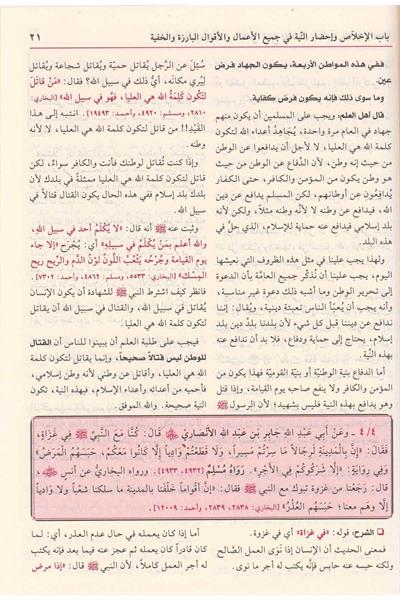 باب الإخلاص وإحضار النية في جميع الأعمال والأقوال البارزة والخفية
٢١
ففي هذه المواطن الأربعة، يكون الجهاد فرض
عين.
وما سوى ذلك فإنه يكون فرض كفاية.
قال أهل العلم: ويجب على المسلمين أن يكون منهم
جهاد في العام مرة واحدة، يُجاهد أعداء الله لتكون
كلمة الله هي العليا، لا لأجل أن يدافعوا عن الوطن
من حيث إنه وطن، لأن الدفاع عن الوطن من حيث
هو وطن يكون من المؤمن والكافر، حتى الكفار
يُدافِعون عن أوطانهم، لكن المسلم يدافع عن دين
الله، فيدافع عن وطنه لا لأنه وطنه مثلاً، ولكن لأنه
بلد إسلامي فيدافع عنه حماية للإسلام، الذي حلّ في
هذه البلد.
ولهذا يجب علينا في مثل هذه الظروف التي نعيشها
اليوم، يجب علينا أن نُذكّر جميع العامة بأن الدعوة
إلى تحرير الوطن وما أشبه ذلك دعوة غير مناسبة،
وأنه يجب أن يُعبّأ الناس تعبئة دينية، ويُقال: إننا
ندافع عن ديننا قبل كل شيء لأن بلدنا بلدُ دين بلد
إسلام، يحتاج إلى حماية ودفاع، فلا بد أن ندافع عنه
بهذه النية.
أما الدفاع بنية الوطنية أو بنية القومية فهذا يكون من
المؤمن والكافر ولا ينفع صاحبه يوم القيامة، وإذا قتل
وهو يدافع بهذه النية فليس بشهيد؛ لأن الرسول ﷺ
سُئِلَ عن الرّجل يُقاتل حميّة ويُقاتل شجاعة ويُقاتل
ليُرى مكانه، أيّ ذلك في سبيل الله؟ فقال: «مَنْ قاتَلَ
لتكون كلمةُ الله هي العليا، فهُو في سبيل الله» [البخاري:
٢٨١٠، ومسلم: ٤٩٢٠، وأحمد: ١٩٤٩٣]. انتبه إلى هذا
القيد!! من قاتل لتكون كلمة الله هي العليا، لا لأنه
وطنه.
وإذا كنت تُقاتل لوطنك فأنت والكافر سواءٌ، لكن
قاتل لتكون كلمة الله هي العليا ممثلةً في بلدك لأن
بلدك بلد إسلام ففي هذه الحال يكون القتال قتالاً في
سبيل الله.
وثبت عنه ﷺ أنه قال: «لا يُكْلَمُ أحد في سبيل الله،
والله أعلم بمنْ يُكْلَمُ في سبيله» أي: يُجرَح «إلا جاء
يوم القيامة وجُرْحُه يَثْعُبُ اللّونُ لونُ الدّم والرّيح ريح
المِسْك» [البخاري: ٥٥٣٣، ومسلم: ٤٨٦٢، وأحمد: ٧٣٠٢].
فانظر كيف اشترط النبي ﷺ للشهادة أن يكون الإنسان
يُقاتل في سبيل الله، والقتال في سبيل الله أن يقاتل
لتكون كلمة الله هي العليا.
فيجب على طلبة العلم أن يبينوا للناس أن القتال
للوطن ليس قتالاً صحيحاً، وإنما يقاتل لتكون كلمة
الله هي العليا، وأقاتل عن وطني لأنه وطن إسلامي،
فأحميه من أعدائه وأعداء الإسلام، فبهذه النية، تكون
النية صحيحة. والله الموفق.
٤/٤ - وعَنْ أبِي عبدِ اللهِ جَابرِ بن عبدِ الله الأنْصَارِيِّ قَالَ: كُنَّا مَعَ النَّبيِّ ﷺ فِي غَزَاةٍ،
فَقَالَ: «إِنَّ بِالْمَدِينَةِ لَرِجَالاً مَا سِرْتُمْ مَسِيراً، وَلاَ قَطَعْتُمْ وَادِياً إِلاَّ كَانُوا مَعَكُمْ، حَبَسَهُمُ الْمَرَضُ»
وَفِي رِوَايَةٍ: «إِلاَّ شَرِكُوكُمْ فِي الأَجْرِ». رَوَاهُ مُسْلِمٌ [٤٩٣٢، ٤٩٣٣]. ورواه البخاري عن أنسٍ
قال: رَجَعْنا من غزوة تبوك مع النبي ﷺ فقال: «إنَّ أقْواماً خَلْفَنا بالمدينة ما سلكنا شعباً ولا وادياً
إلا وهم معنا؛ حَبَسَهُم العُذْرُ» [البخاري: ٢٨٣٨، ٢٨٣٩، وأحمد: ١٢٠٠٩].
الشرح: قوله: «في غَزَاة» أي في غزوة.
فمعنى الحديث أن الإنسان إذا نَوى العمل الصالح
ولكنه حبسه عنه حابس فإنه يُكتب له أجر ما نوى.
أما إذا كان يعمله في حال عدم العذر، أي: لما
كان قادراً كان يعمله ثم عجز عنه فيما بعد فإنه يكتب
له أجر العمل كاملاً، لأن النبي ﷺ قال: «إذا مرض